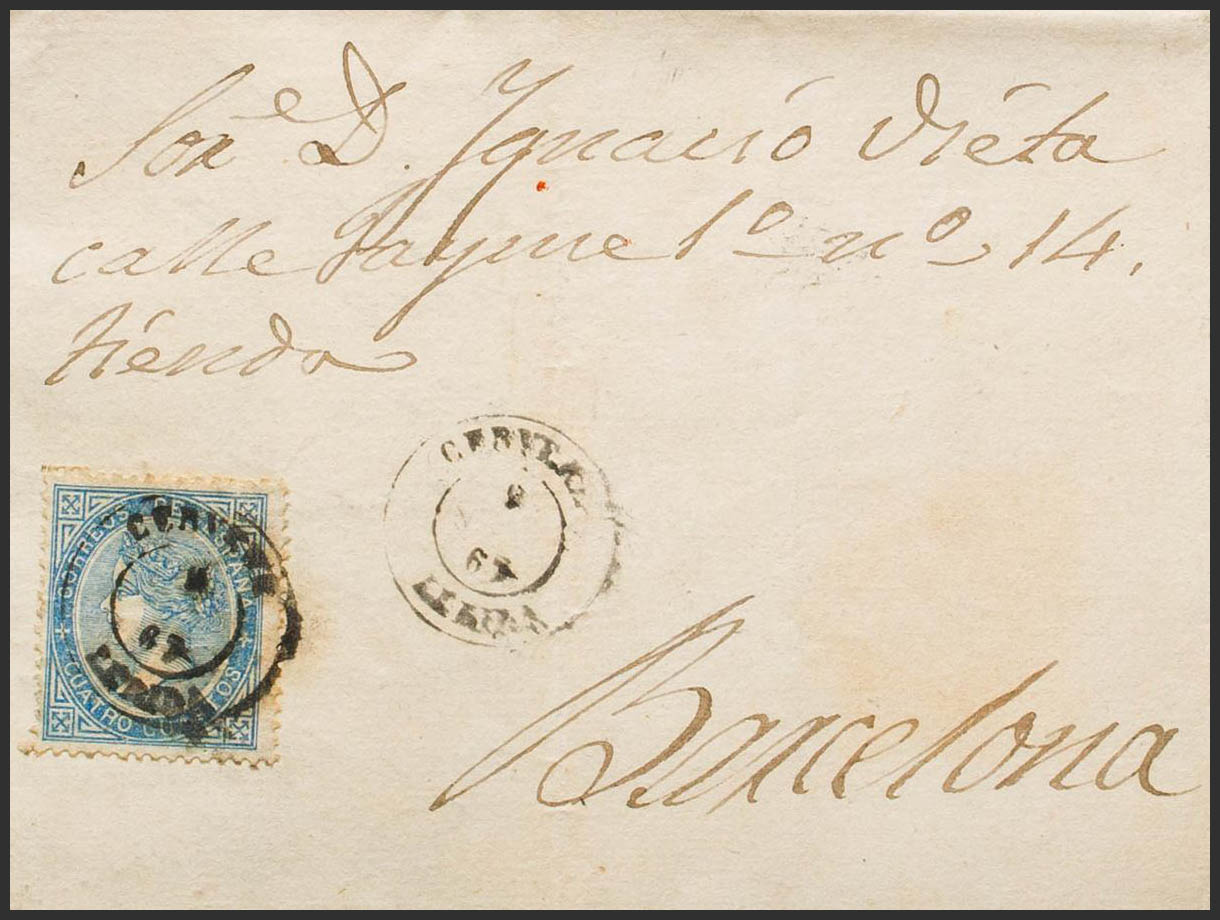 Sor^e. D. Ygnació Viéta
calle Jayme 1º nº 14.
tienda
CERVERA
67
LERIDA
CORREOS DE ESPAÑA
CUATRO CUARTOS
CERVERA
67
LERIDA
Barcelona